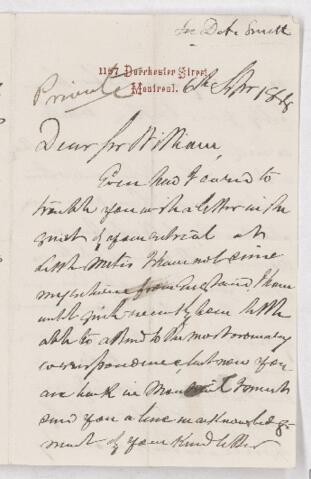 Sir Don. Smith
1157 Dorchester Street,
Montreal.
Private
6th Septr 1888
Dear Sir William,
Even had I cared to
trouble you with a letter in the
quiet of your retreat at
Little Metis I have not since
my return from England, I have
until quite recently been little
able to attend to the most ordinary
correspondence, but now you
are back in Montreal I must
send you a line in acknowledg-
ment of your kind letter